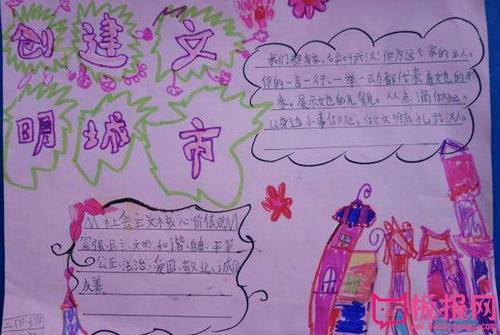 创建文
明城市
我们都有个家,名叫武汉!作为这个家的主人,
你的一言一行、一举一动都代表着她的形
象。展示她的风貌。从点滴做起,
从身边小事做起,做文明有礼武汉人。
社会主义核心价值观
富强、民主、文明、和谐、自由、平等
公正、法治、爱国、敬业、诚信
友善。
板报网